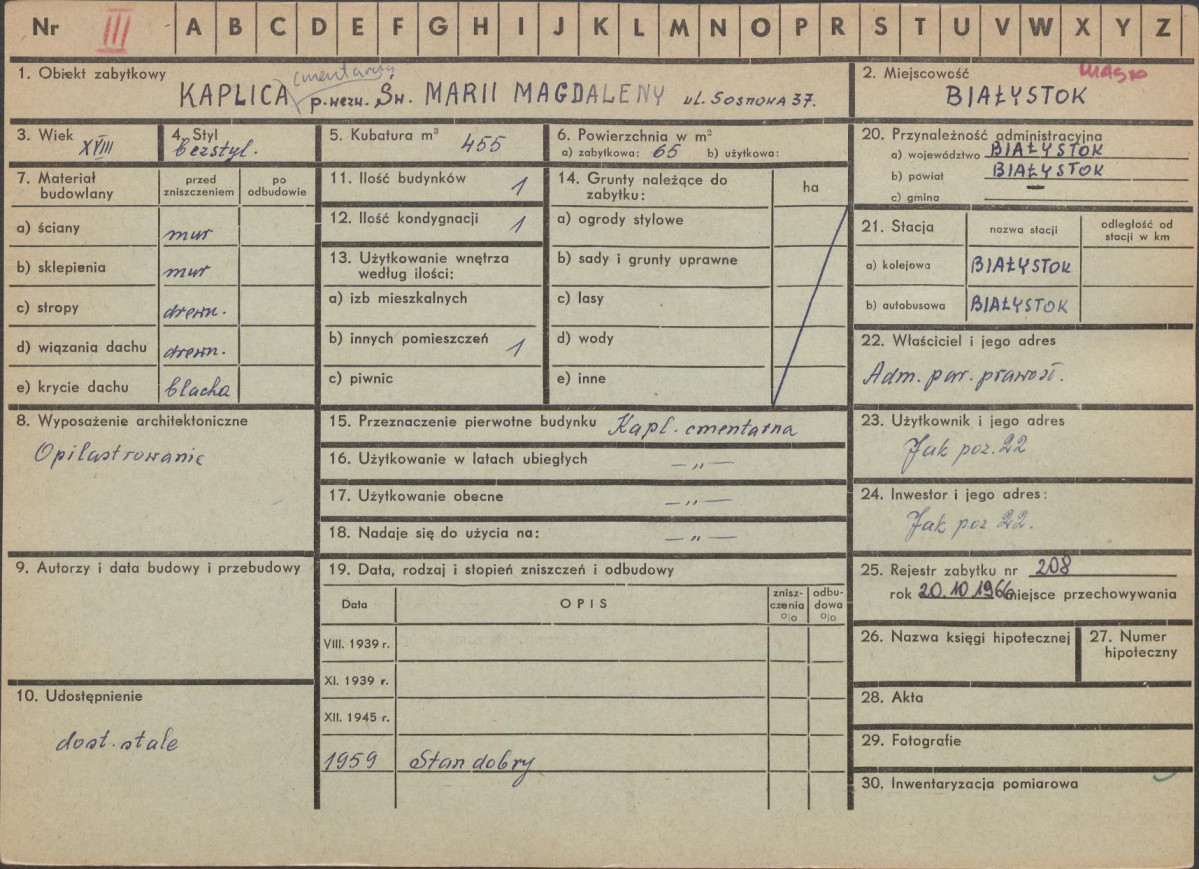 Nr III A B C D E F G H I J K L M N O P R S T U V W X Y Z
1. Obiekt zabytkowy
cmentarna
KAPLICA p. wezw. Św. MARII MAGDALENY ul. Sosnowa 37.
2. Miejscowość
miasto
BIAŁYSTOK
3. Wiek XVIII
4. Styl bezstyl.
5. Kubatura m³ 455
6. Powierzchnia w m²
a) zabytkowa: 65 b) użytkowa:
20. Przynależność administracyjna
a) województwo BIAŁYSTOK
b) powiat BIAŁYSTOK
c) gmina —
7. Materiał budowlany
przed zniszczeniem
po odbudowie
a) ściany mur
b) sklepienia mur
c) stropy drewn.
d) wiązania dachu drewn.
e) krycie dachu blacha
11. Ilość budynków 1
12. Ilość kondygnacji 1
13. Użytkowanie wnętrza według ilości:
a) izb mieszkalnych
b) innych pomieszczeń 1
c) piwnic
14. Grunty należące do zabytku:
ha
a) ogrody stylowe
b) sady i grunty uprawne
c) lasy
d) wody
e) inne
21. Stacja
nazwa stacji
odległość od stacji w km
a) kolejowa BIAŁYSTOK
b) autobusowa BIAŁYSTOK
22. Właściciel i jego adres
Adm. par. prawosł.
8. Wyposażenie architektoniczne
Opilastrowanie
15. Przeznaczenie pierwotne budynku Kapl. cmentarna
16. Użytkowanie w latach ubiegłych —„—
17. Użytkowanie obecne —„—
18. Nadaje się do użycia na: —„—
23. Użytkownik i jego adres
Jak poz. 22
24. Inwestor i jego adres:
Jak poz 22.
9. Autorzy i data budowy i przebudowy
19. Data, rodzaj i stopień zniszczeń i odbudowy
Data
OPIS
znisz-
czenia
o|o
odbu-
dowa
o|o
VIII. 1939 r.
XI. 1939 r.
XII. 1945 r.
1959 Stan dobry
25. Rejestr zabytku nr 208
rok 20.10 1966 miejsce przechowywania
26. Nazwa księgi hipotecznej
27. Numer hipoteczny
10. Udostępnienie
dost. stale
28. Akta
29. Fotografie
30. Inwentaryzacja pomiarowa